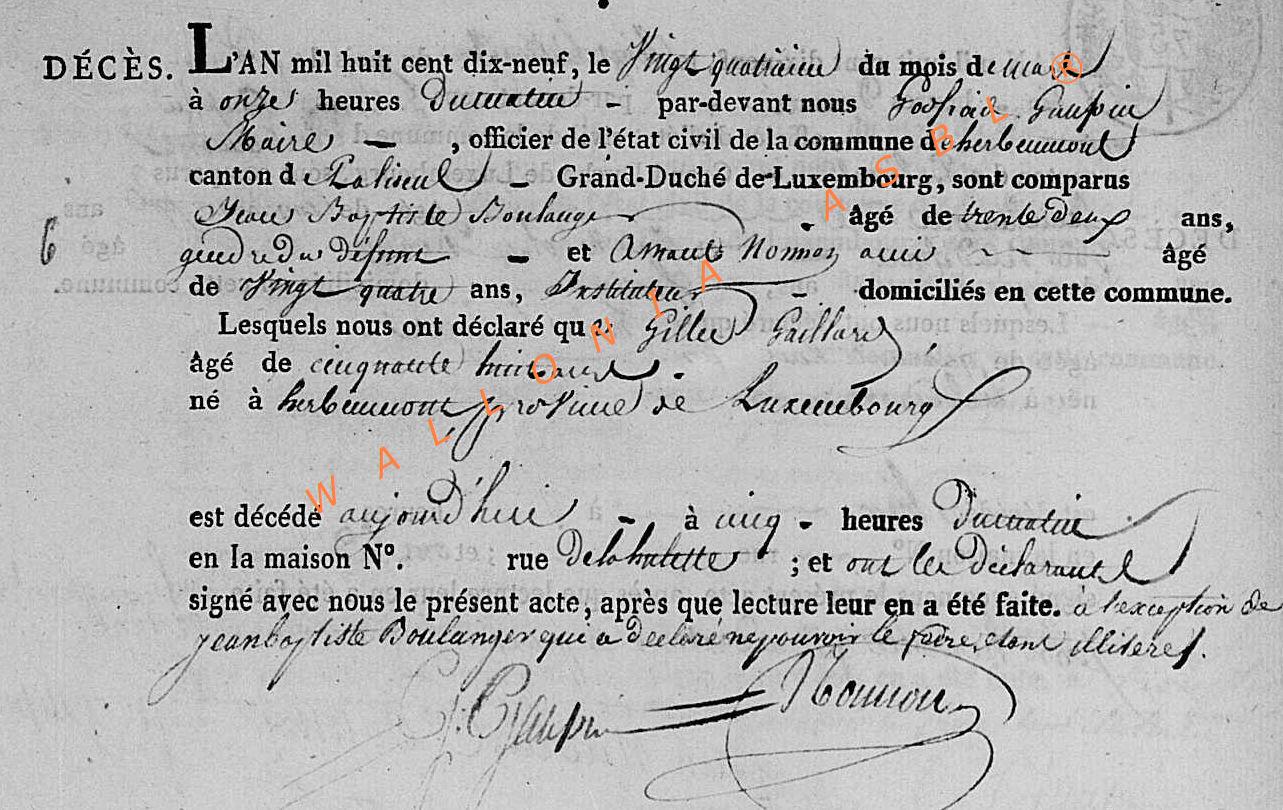 DÉCÈS. L'AN mil huit cent dix-neuf, le Vingt quatrieme du mois de mars
à onze heures du matin - par-devant nous Godfroid Gaupin
Maire - , officier de l'état civil de la commune d'herbeumont
canton de Paliseul - Grand-Duché de Luxembourg, sont comparus
Jean Baptiste Boulanger - âgé de trente deux ans,
6 gendre du défunt - et Arnauld Nonnon ami - - - âgé
de Vingt quatre ans, Instituteur - domiciliés en cette commune.
Lesquels nous ont déclaré que Gilles Gaillard,
âgé de cinquante huit ans.
né à herbeumont, province de Luxembourg
est décédé aujourd'hui - à cinq - heures du matin
en la maison N°. rue de la hulette ; et ont les déclarants
signé avec nous le présent acte, après que lecture leur en a été faite. à l'exception de
jean baptiste Boulanger qui a declaré ne pouvoir le faire, etant illiteré.
G: Gaupin Nonnon
WALLONIA ASBL ®